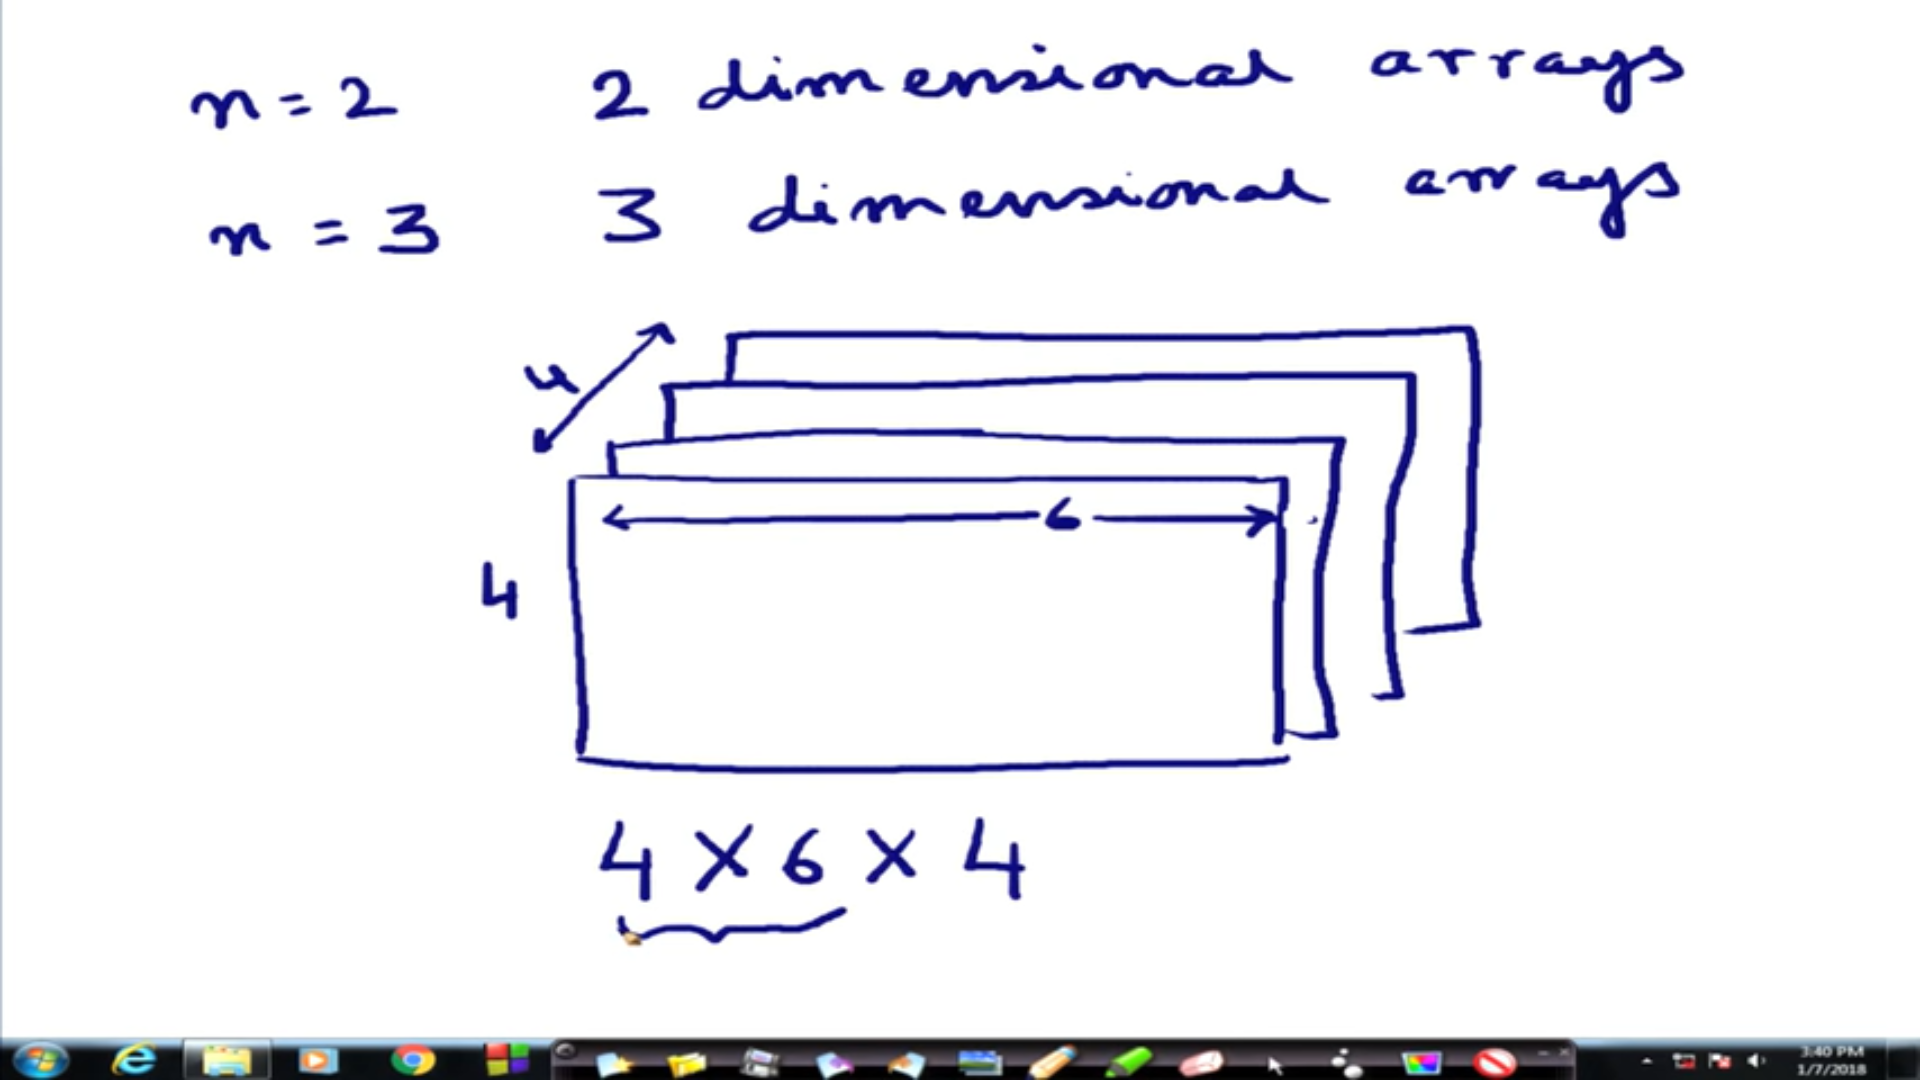 n = 2 2 dimensional arrays
n = 3 3 dimensional arrays
4
6
4
4 X 6 X 4
3:40 PM
1/7/2018